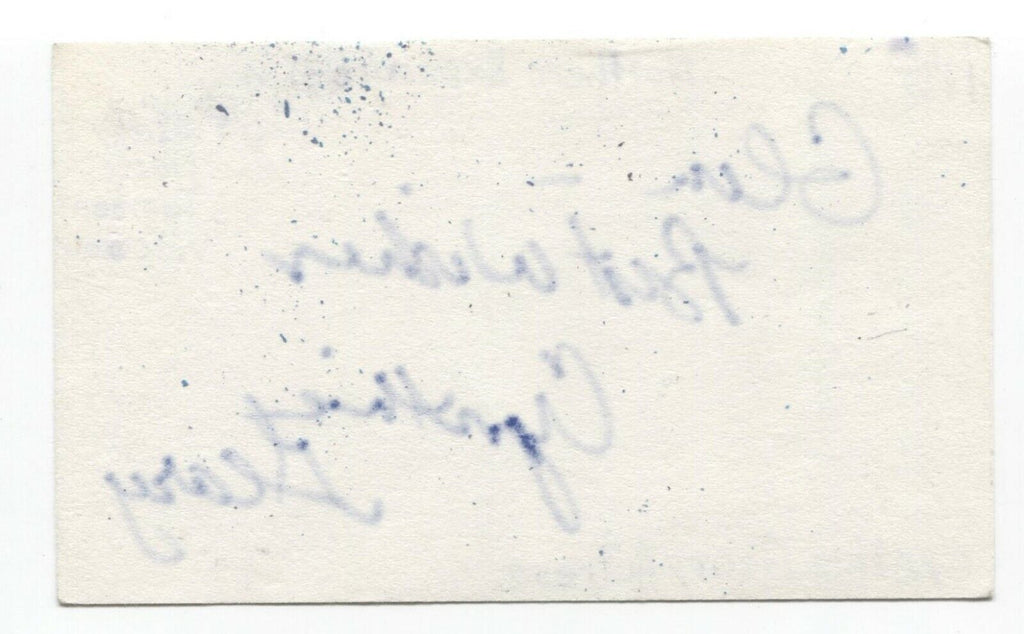 Glen —
Best Wishes
Cynthia
Geary